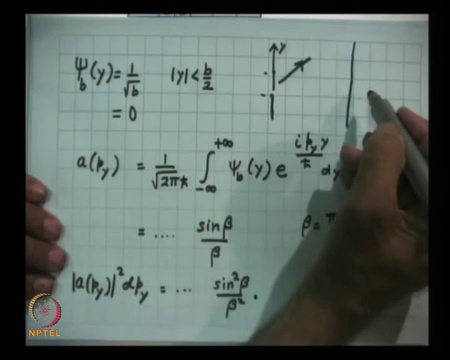 Ψ_b(y) = 1/√b |y| < b/2
= 0
y
a(p_y) = 1/√(2πħ) ∫_{-∞}^{+∞} Ψ_b(y) e^{i p_y y/ħ} dy
= .... sinβ/β β = π
|a(p_y)|² dp_y = ... sin²β/β² .
NPTEL